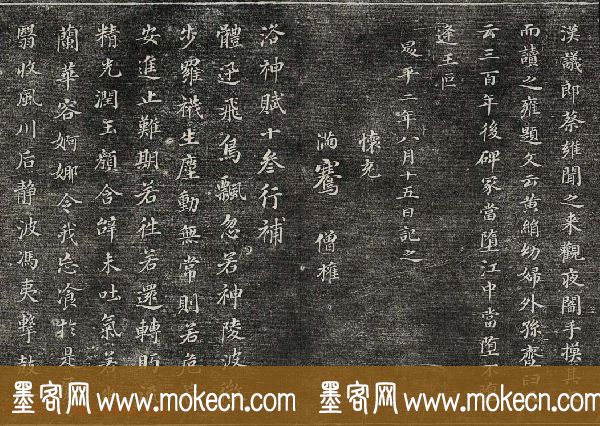 漢議郎蔡雍聞之来觀夜闇手摸其
而讀之雍題文云黄絹幼婦外孫齏臼
云三百年後碑冢當墮江中當墮不墮
逢王叵
昇平二年八月十五日記之
懷充
滿騫 僧權
洛神賦十叁行補
體迅飛鳧飄忽若神陵波微
步羅襪生塵動無常則若危
安進止難期若往若還轉眄流
精光潤玉顔含辭未吐氣若幽
蘭華容婀娜令我忘飡於是
翳收風川后静波馮夷擊鼓
墨客网 www.mokecn.com 墨客网 www.mokecn.com